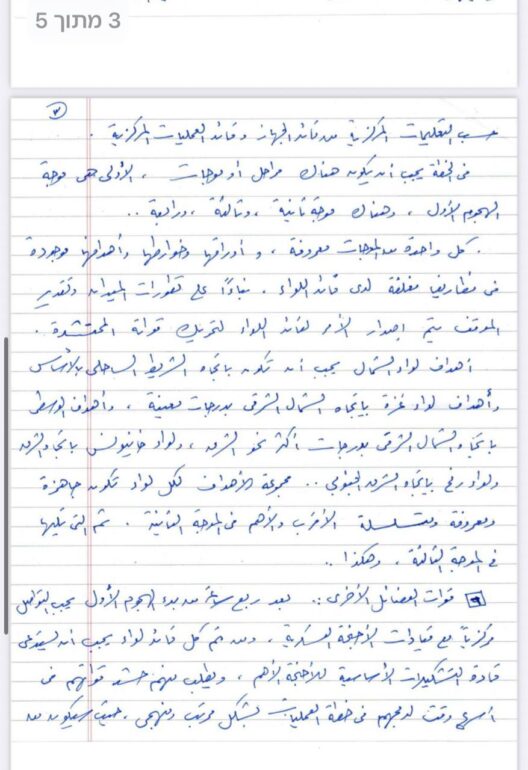 3 מתוך 5
٣
حسب التعليمات المركزية من قائد الجهاز وقائد العمليات المركزية .
في الخطة يجب أن يكون هناك مراحل أو موجات ، الأولى هي موجة
الهجوم الأول ، وهناك موجة ثانية ، وثالثة ، ورابعة ..
. كل واحدة من الموجات معروفة ، و أوراقها وخوارطها وأهدافها موجودة
في مظاريف مغلقة لدى قائد اللواء . بناءً على تطورات الميدان وتقدير
الموقف يتم إصدار الأمر لقائد اللواء لتحريك قواته المحتشدة .
أهداف لواء الشمال يجب أن تكون باتجاه الشريط الساحلي بالأساس
وأهداف لواء غزة باتجاه الشمال الشرقي بدرجات معينة ، وأهداف الوسطى
باتجاه الشمال الشرقي بدرجات أكثر نحو الشرق ، ولواء خانيونس باتجاه الشرق
ولواء رفح باتجاه الشرق الجنوبي .. مجموعة الأهداف لكل لواء تكون جاهزة
ومعروفة ومتسلسلة الأقرب والأهم في الموجة الثانية . ثم التي تليها
في الموجة الثالثة ، وهكذا ..
٩ قوات الفصائل الأخرى :. بعد ربع ساعة من بدء الهجوم الأول يجب التواصل
مركزياً مع قيادات الأجنحة العسكرية ، ومن ثم كل قائد لواء يجب أن يستدعي
قادة التشكيلات الأساسية للأجنحة الأهم ، ويطلب منهم حشد قواتهم في
أسرع وقت لدمجهم في خطة العمليات بشكل مرتب ومنهجي ، حيث سيكون من